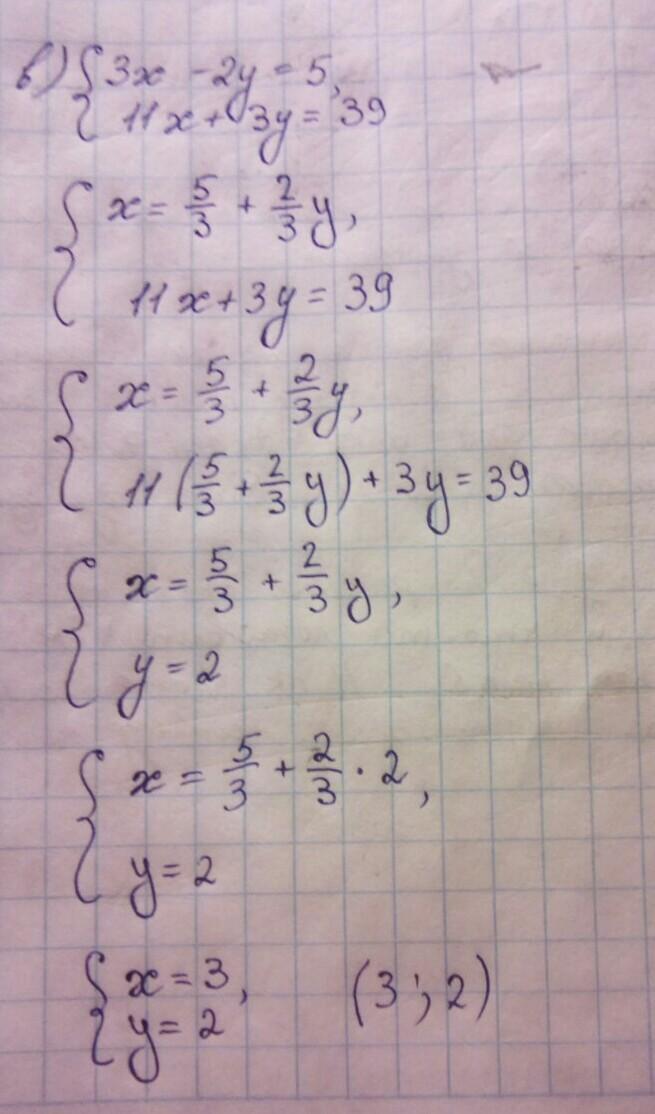 в) { 3x - 2y = 5,
11x + 3y = 39
{ x = 5/3 + 2/3 y,
11x + 3y = 39
{ x = 5/3 + 2/3 y,
11 (5/3 + 2/3 y) + 3y = 39
{ x = 5/3 + 2/3 y,
y = 2
{ x = 5/3 + 2/3 · 2,
y = 2
{ x = 3, (3; 2)
y = 2